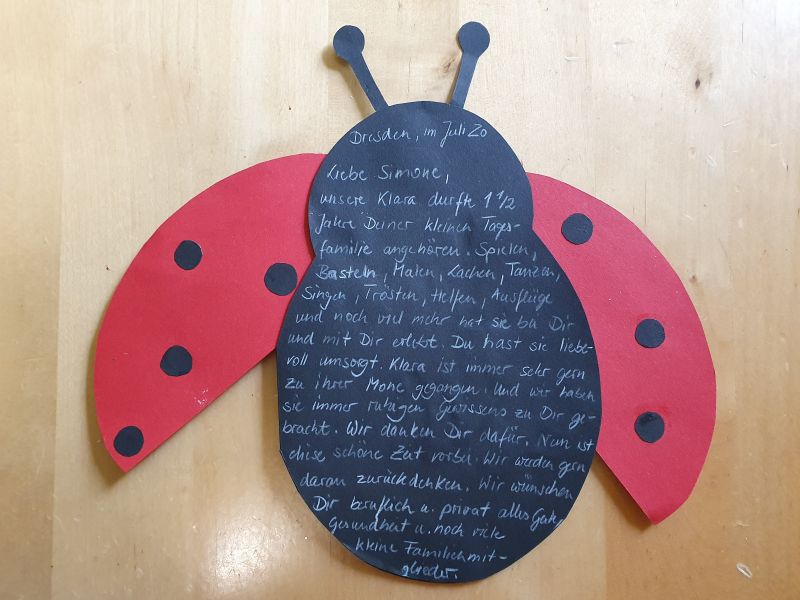 Dresden, im Juli 20
Liebe Simone,
unsere Klara durfte 1 1/2
Jahre Deiner kleinen Tages-
familie angehören. Spielen,
Basteln, Malen, Lachen, Tanzen,
Singen, Trösten, Helfen, Ausflüge
und noch viel mehr hat sie bei Dir
und mit Dir erlebt. Du hast sie liebe-
voll umsorgt. Klara ist immer sehr gern
zu ihrer Mone gegangen. Und wir haben
sie immer ruhigen Gewissens zu Dir ge-
bracht. Wir danken Dir dafür. Nun ist
diese schöne Zeit vorbei. Wir werden gern
daran zurückdenken. Wir wünschen
Dir beruflich u. privat alles Gute,
Gesundheit u. noch viele
kleine Familienmit-
glieder.